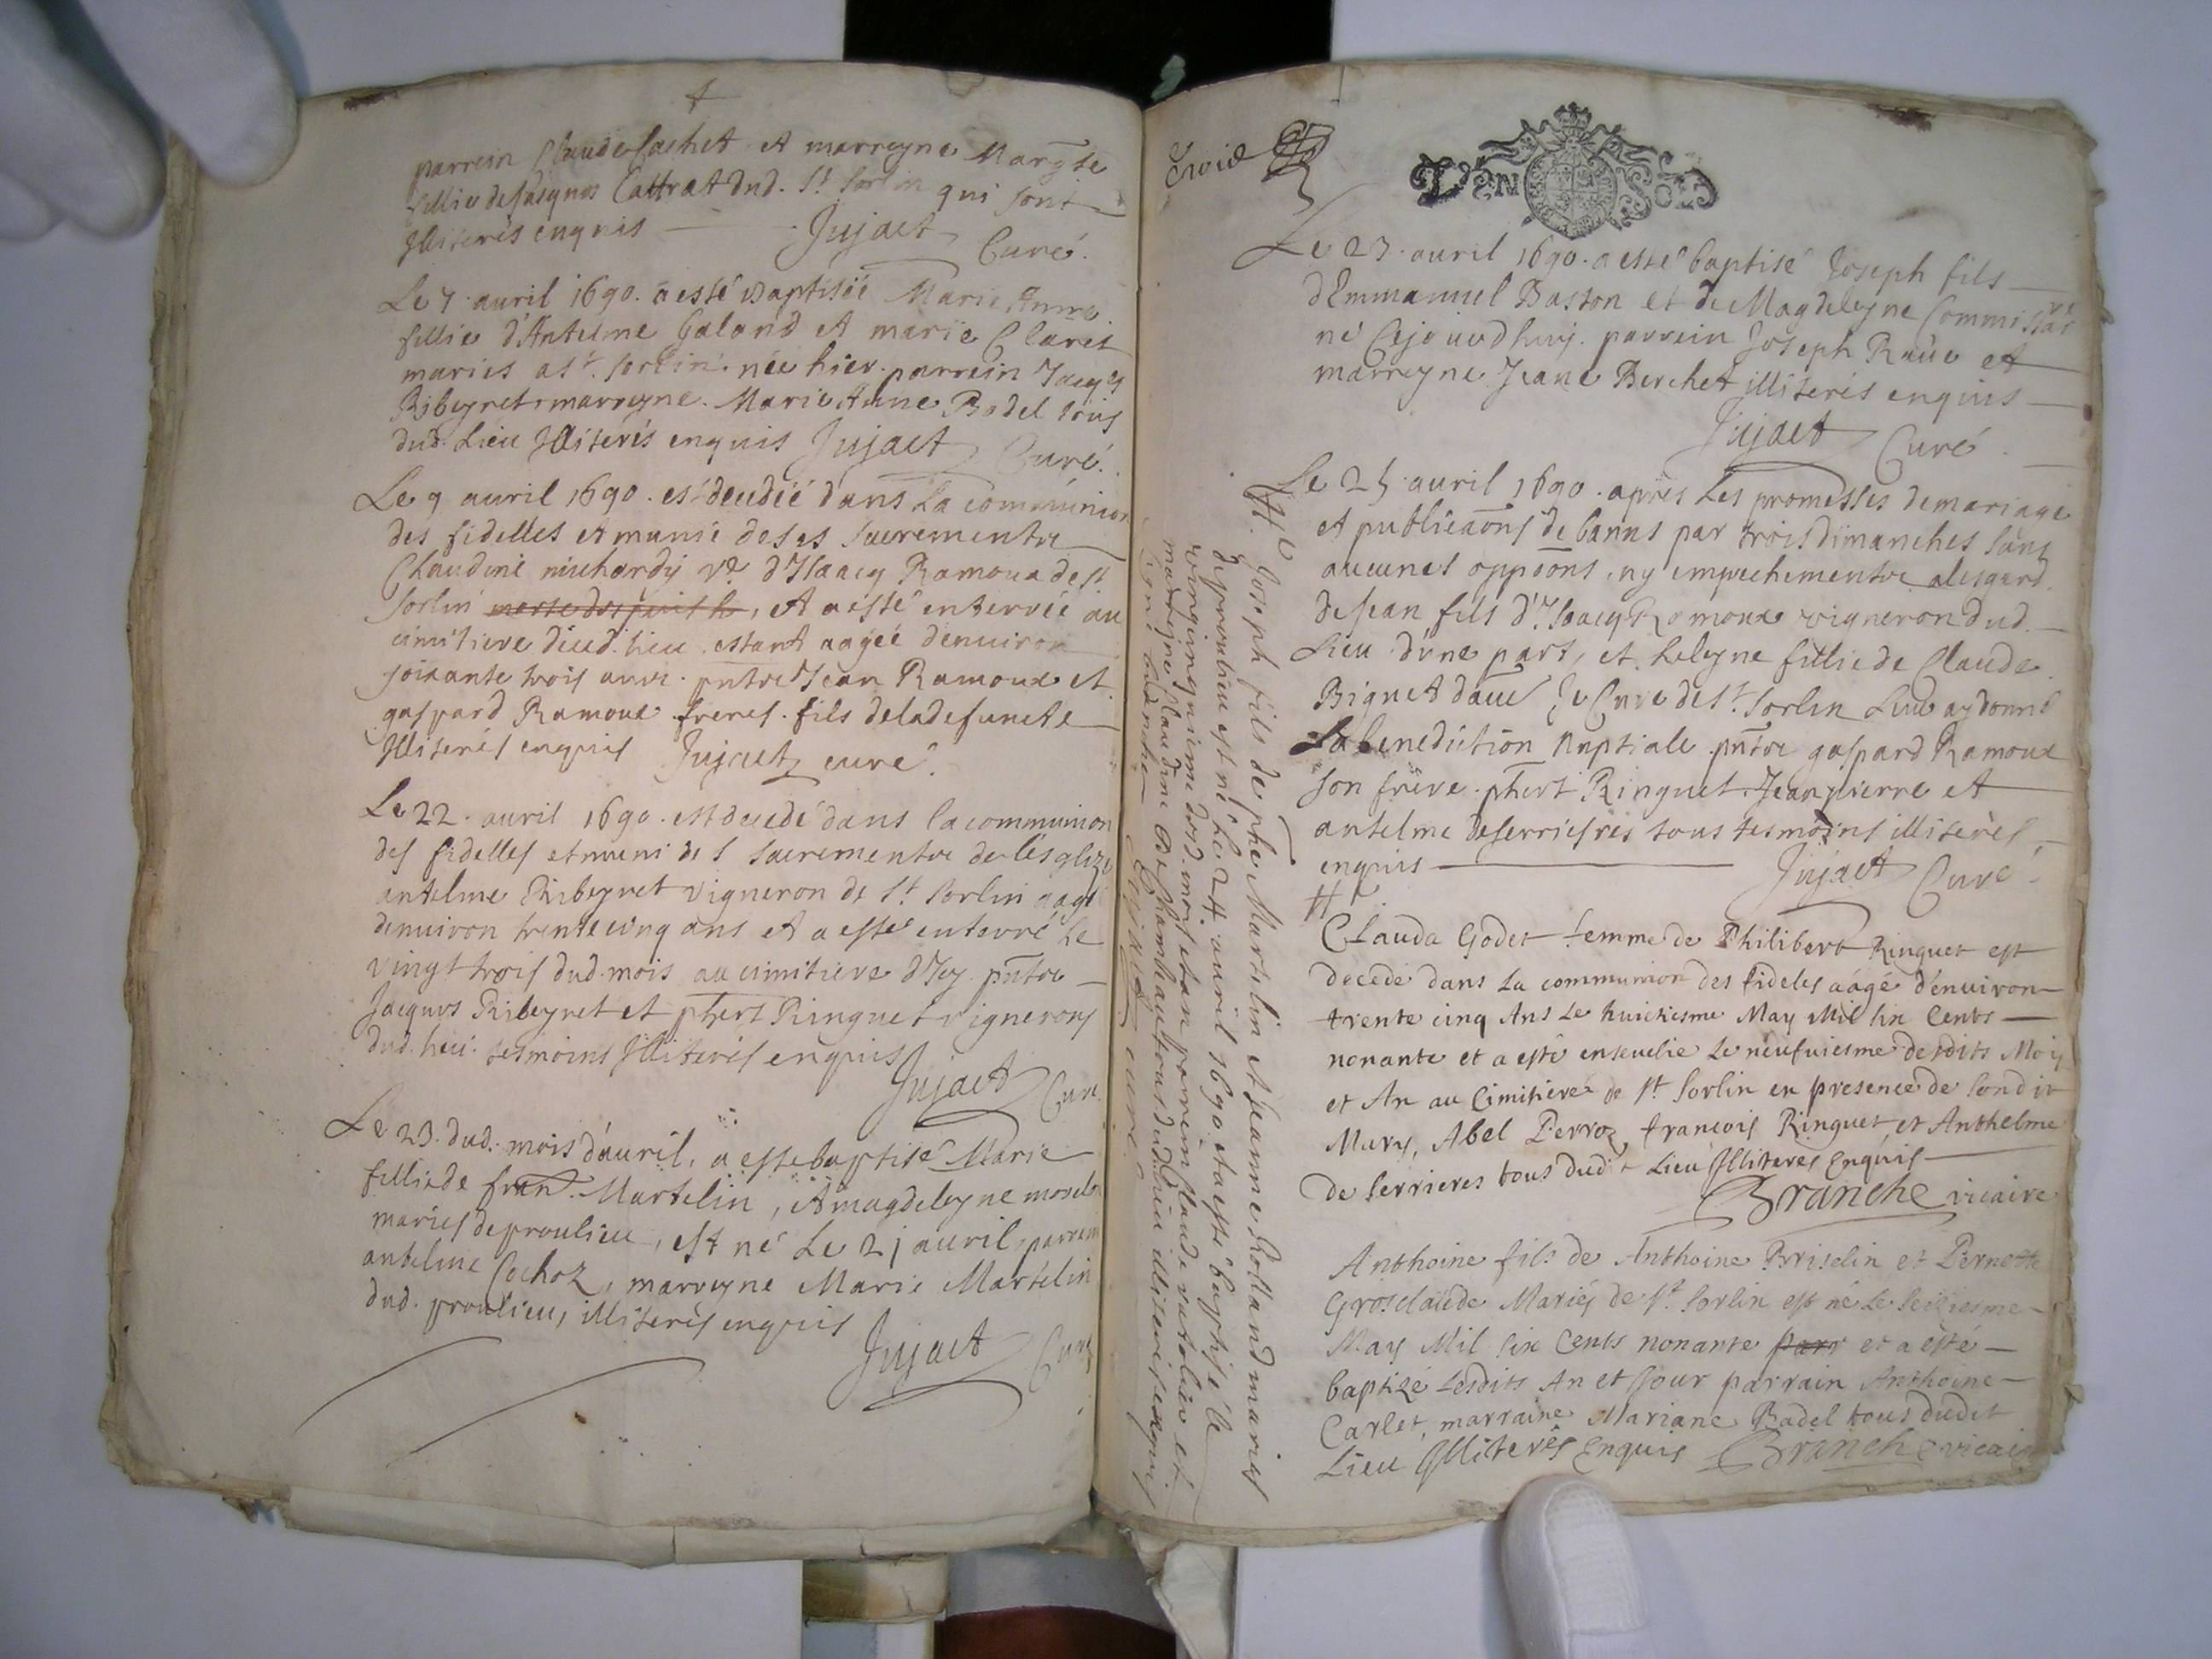 parrein Claude Cachet et marreyne Margte
fillie de Jacques Cattrat dud. St Sorlin qui sont
Illiterés enquis Jujact Curé.
Le 7 auril 1690. a esté Baptisée Marie Anne
fillie d'Antelme Galand et marie Claret
mariés a St. Sorlin. née hier. parrein Jacqs
Ribeyret, marreyne. Marie Anne Badel tous
dud. Lieu Illiterés enquis Jujact Curé.
Le 9 auril 1690. est decedée dans La communion
des fidelles et munie de ses sacrementz
Claudine michardÿ ve d'Isaacq Ramoux de st
Sorlin, et a esté enterrée au
cimitiere dicd. lieu. estant aagée denuiron
soixante trois ans. pntz Jean Ramoux et
gaspard Ramoux freres. fils de la defuncte
Illiterés enquis Jujact curé.
Le 22. auril 1690. est decedé dans la communion
des fidelles et muni de s sacrementz de lesglize
antelme Ribeyret vigneron de St Sorlin aagé
denuiron trente cinq ans et a esté enterré Le
vingt trois dud. mois au cimitiere d'Icy. pntz
Jacques Ribeyret et phert Ringuet vignerons
dud. lieu. tesmoins Illiterés enquis
Jujact Curé
Le 23. dud. mois d'auril, a esté baptisé Marie
fillie de fran. Martelin, et magdeleyne morel
mariés de proulieu, est né Le 21 auril, parrein
antelme Cochoz, marreyne Marie Martelin
dud. proulieu, illiterés enquis
Jujact Curé
Troix
DEN SOLS
Le 23. auril 1690. a esté baptisé Joseph fils
d'Emmanuel Baston et de Magdeleyne
né Cejourdhuy. parrein Joseph Raüe et
marreyne Jeane Berchet illiterés enquis
Jujact Curé.
Le 25. auril 1690. apres Les promesses de mariage
et publicaons de banns par trois dimanches sans
aucunes oppoons, ny empechementz alesgard
de Jean fils d'Isaacq Ramoux vigneron dud.
Lieu d'une part, et heleyne fillie de Claude
Biguet Je Curé de St. Sorlin Leur ay donné
La benediction nuptiale pntz gaspard Ramoux
son frere. phert Ringuet, Jean pierre et
antelme deserrieres tous tesmoins illiterés
enquis Jujact Curé
Joseph fils de pher Martelin et Jeanne Rolland mariés
de proulieu est né Le 24 auril 1690 et a esté baptisé le
vingcinquieme dud. mois et an parrein Claude et
marreyne Claudine de Chambaud tous dud. lieu illiterés enquis
Jujact curé
Clauda Godet femme de Philibert Ringuet est
decedé dans La communion des fideles aagé d'enuiron
trente cinq Ans Le huictiesme May Mil six Cents
nonante et a esté ensevelie Le neufuiesme desdits Mois
et An au Cimitiere de St Sorlin en presence de Sondit
Mary, Abel Perroz, françois Ringuet et Anthelme
de Serrieres tous dudit Lieu Illiterés Enquis
Branche vicaire
Anthoine fils de Anthoine Briselin et Pernette
Grosclaude Mariés de St. Sorlin est né Le Seiziesme
May Mil six Cents nonante parr et a esté
baptizé Lesdits An et Jour parrain Anthoine
Carlet, marraine Mariane Badel tous dudit
Lieu Illiterés Enquis Branche vicaire